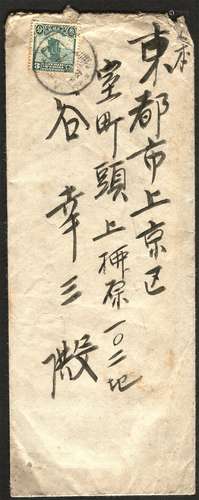 本
東都市上京区
室町頭上柳原一〇二地
谷幸三殿
3